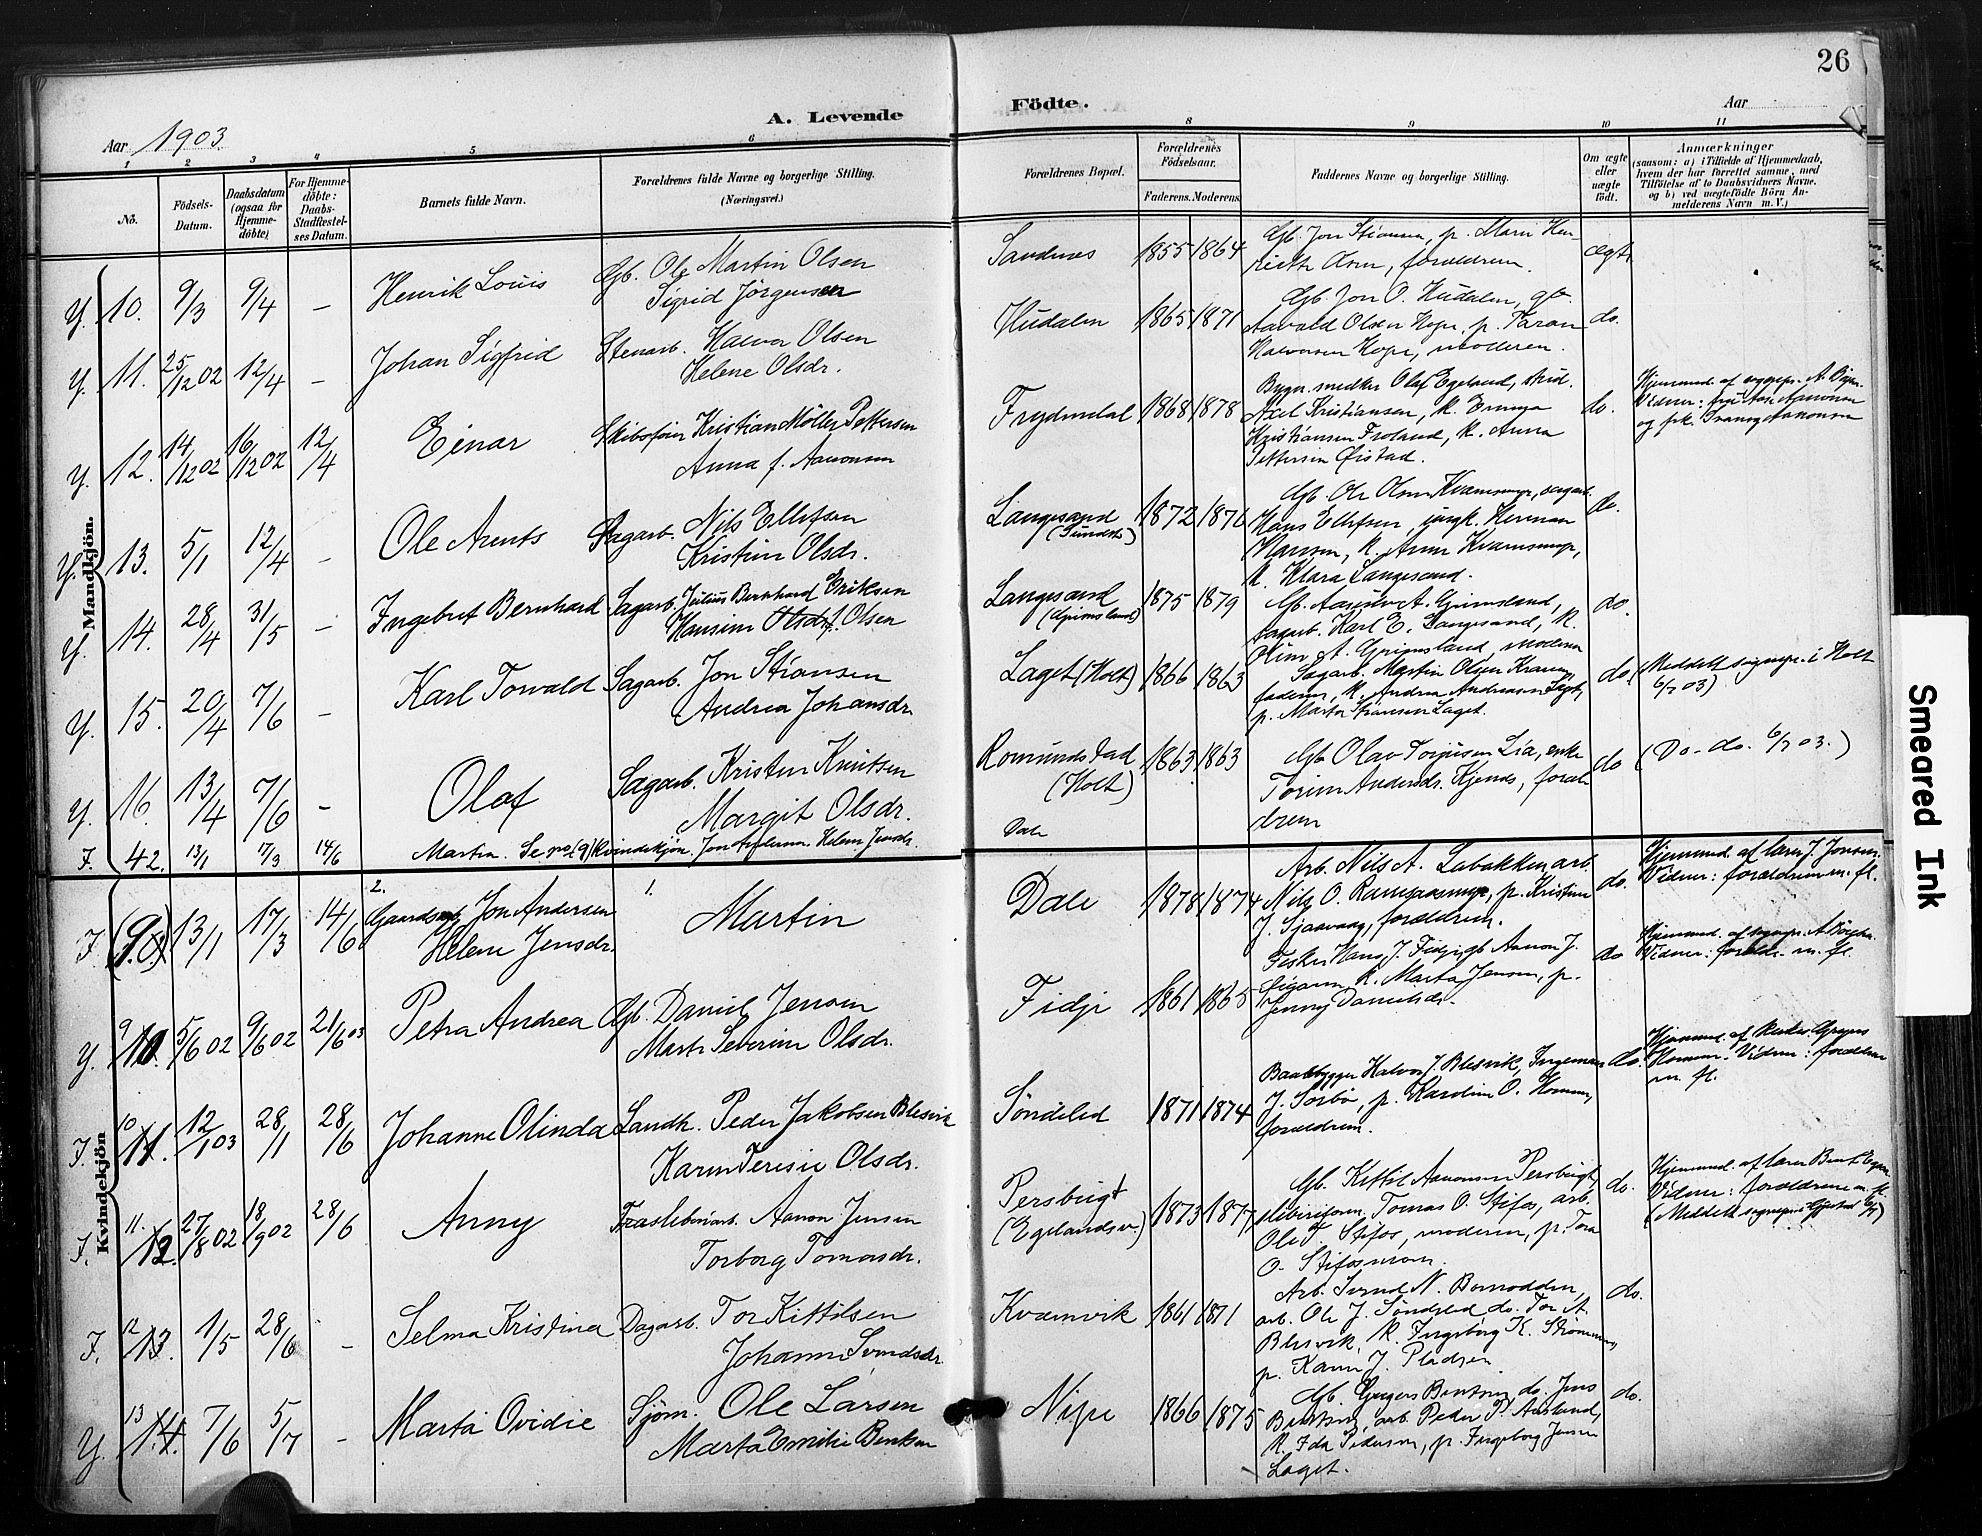 26
Aar 1903.
A. Levende
Födte.
Aar
1
2
3
4
5
6
8
9
10
11
Nö.
Födsels-
Datum.
Daabsdatum
(ogsaa for
Hjemme-
döbte)
For Hjemme-
döbte:
Daabs-
Stadfæstel-
ses Datum.
Barnets fulde Navn.
Forældrenes fulde Navne og borgerlige Stilling.
(Næringsvei.)
Forældrenes Bopæl.
Forældrenes
Födselsaar.
Faderens. Moderens.
Faddernes Navne og borgerlige Stilling.
Om ægte
eller
uægte
födt.
Anmærkninger
(saasom: a) i Tilfælde af Hjemmedaab,
hvem der har forrettet samme, med
Tilföielse af to Daabsvidners Navne.
og b) ved uægtefödte Börn An-
melderens Navn m. V.)
Mandkjön.
Y. 10. 9/3 9/4 – Henrik Louis Gb. Ole Martin Olsen
Sigrid Jörgensen
Sandnes 1855 1864
forældrene.
ægte
Y. 11. 25/12 02 12/4 – Johan Sigfrid Stenarb. Halvor Olsen
Helene Olsdr.
Hudalen 1865 1871 Gb. Jon O. Hudalen, gb.
Aavald Olsen Hope, p. Taran
Halvorsen Hope, moderen.
do.
Y. 12. 14/12 02 16/12 02 12/4 Einar Skibsförer Kristian Möller Pettersen
Anna f. Aanonsen
Frydendal 1868 1878 Bygn. snedker Olaf Egeland, stud.
Axel Kristiansen, k. Emma
Kristiansen Froland, k. Anna
Pettersen Öistad.
do.
Y. 13. 5/1 12/4 – Ole Arents Sagarb. Nils Ellefsen
Kristine Olsdr.
Langesand 1872 1876 Gb. Ole Olsen
Hans Ellefsen, ungk. Herman
Hansen, k. Anne
k. Klara Langesand.
do.
Y. 14. 28/4 31/5 – Ingebret Bernhard Sagarb. Julius Bernhard Eriksen
Hansine Olsdr. f. Olsen
Langesand 1875 1879
(Grimsland)
sagarb. Karl E. Langesand, k.
Oline A. Grimsland, moderen
do.
Y. 15. 20/4 7/6 – Karl Torvald Sagarb. Jon Stiansen
Andrea Johansdr.
Laget (Holt) 1866 1863 Sagarb. Martin Olsen
faderen, k. Andrea Andreasen
p. Marta Stiansen Laget.
do. (Meddelt sognepr. i Holt
6/7 03)
Y. 16. 13/4 7/6 – Olaf Sagarb. Kristen Knutsen
Margit Olsdr.
Romundstad 1863 1863
(Holt)
Gb. Olav Torjusen Lia, enke
Torine Andersdr. Kjendes, foræl-
drene
do (Do. do. 6/7 03.)
F. 42. 13/1 17/3 14/6 Martin. Se no. (9) kvindekjön, Jon Andersen, Helene Jensdr. Dale
Kvindekjön
F. (9.) 13/1 17/3 14/6 2. Gaardsarb. Jon Andersen
Helene Jensdr.
1. Martin
Dale 1878 1874 Arb. Nils A. Labakken, arb.
Nils O. p. Kristine
J. forældrene.
do. Hjemmed. af lærer J. Jonsen.
Vidner: forældrene m. fl.
Y. 9 10. 5/6 02 9/6 02 21/6 03 Petra Andrea Gb. Daniel Jensen
Marte Severine Olsdr.
Fidje 1861 1865 Fisker Hans J. Fidje, gb. Aanon J.
k. Marta Jensen, p.
Jenny Danielsdr.
do
Vidner: foreldr. m. fl.
F. 10 11. 12/1 03 28/1 28/6 Johanne Olinda Landh. Peder Jakobsen Blesvik
Karen Teresie Olsdr.
Söndeled 1871 1874 Baadbygger Halvor J. Blesvik, Ingeman
J. Sörbö, p. Karoline O. Hommen,
forældrene.
do.
Vidner: forældrene
m. fl.
F. 11. 12. 27/8 02 18/9 02 28/6 Anny Træsliberiarb. Aanon Jensen
Torborg Tomasdr.
Persbugt 1873 1877
(Egelandsvn)
Gb. Kittil Aanonsen Persbugt,
Tomas O. Stifos, arb.
Ole T. Stifos, moderen, p. Tora
O. Stifosmoen.
do. Hjemmed. af lærer Bent
Vidner: forældrene m. fl.
F. 12 13. 1/5 28/6 – Selma Kristina Dagarb. Tor Kittilsen
Johanne Svendsdr.
Kvamvik 1861 1871 Arb. Svend N. Bomodden,
arb. Ole J. Söndeled, do. Tor A.
Blesvik, k. Ingeborg K. Strömmen,
p. Karen J. Pladsen.
do.
Y. 13 14. 7/6 5/7 – Marta Ovidie Sjöm. Ole Larsen
Marta Emilie Bentsen
Nipe 1866 1875 Gb. Gregers Bentsen, do. Jens
Bentsen, arb. Peder P. Aasland,
k. Ida Pedersen, p. Ingeborg Jensen
Laget.
do.
Smeared Ink